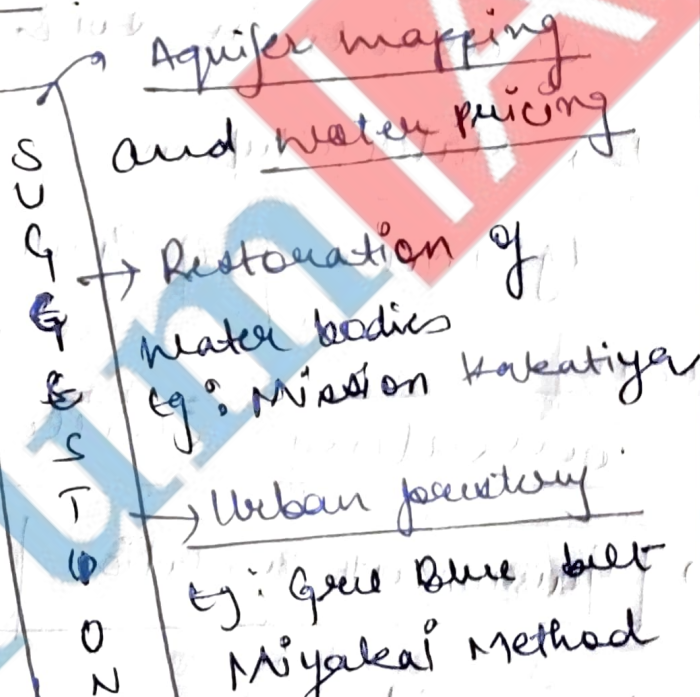 Aquifer mapping
and water pricing
SUGGESTION
→ Restoration of
water bodies
eg: Mission Kakatiya
→ Urban forestry
eg: Gree Blue belt
Miyakai Method